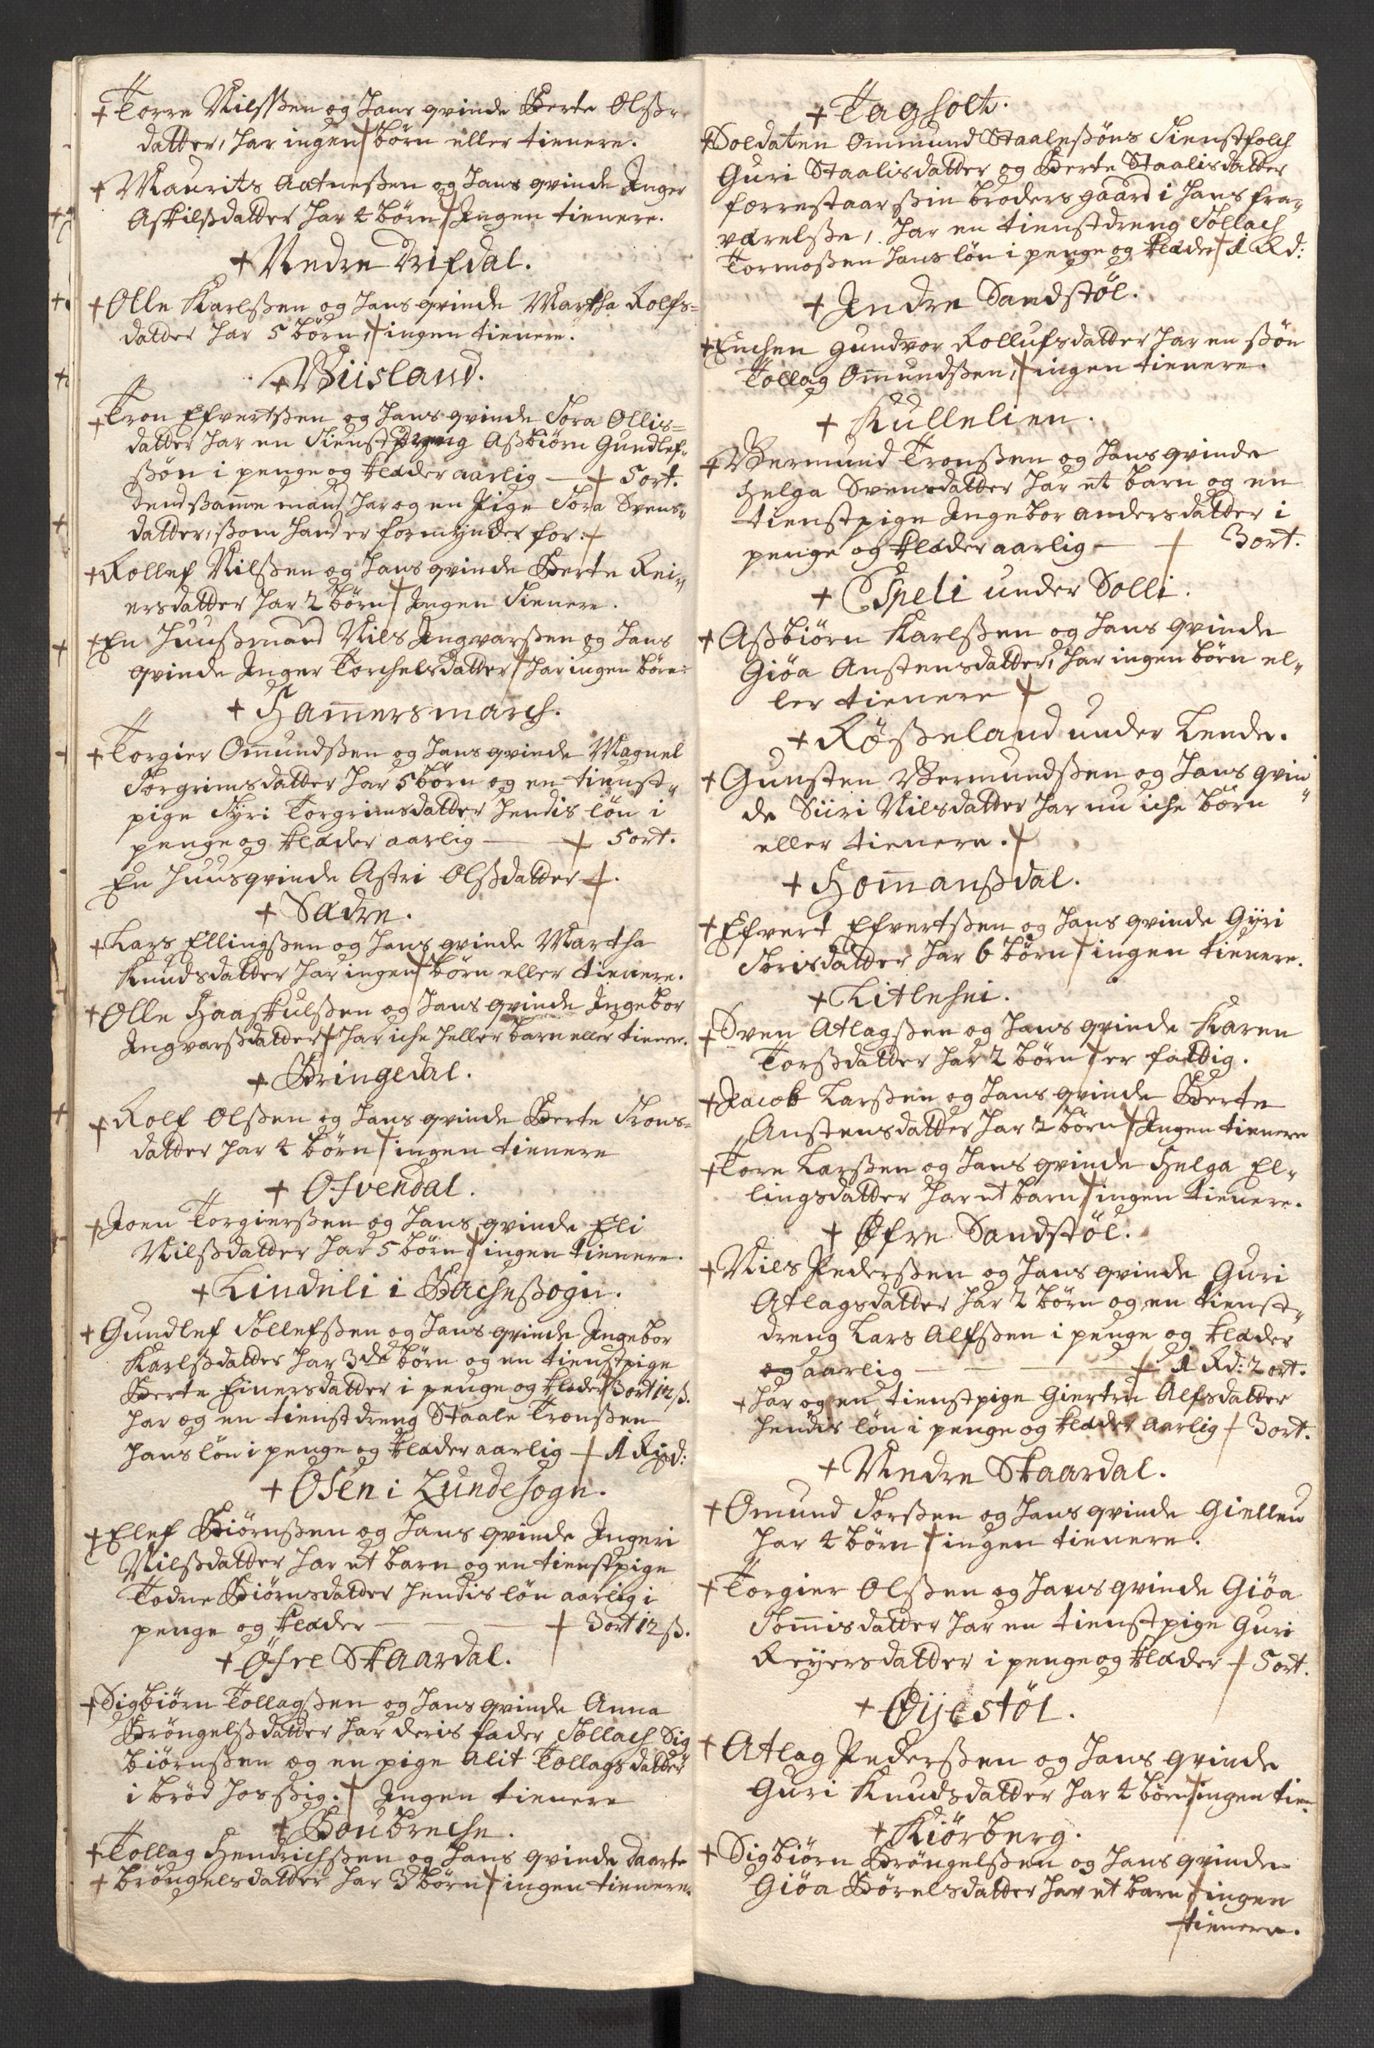 + Torre Nilsßen og hans qvinde Berte Olss-
datter, har ingen + børn eller tienere.
+ Maurits Aatneßen og hans qvinde Inger
Askilsdatter har 4 børn + Ingen tienere.
+ Nedre Drifdal.
+ Olle Karlßen og hans qvinde Martha Rolfs-
datter har 5 børn, + ingen tienere.
+ Viisland.
+ Tron Efvertßen og hans qvinde Tora Ollis-
datter har en tienstdreng Aßbiørn Gundlef-
ßøn i penge og klæder aarlig — + 5 ort.
dend ßamme mand har og en pige Tora Svens-
datter, ßom hand er formynder for. +
+ Rollef Nilßen og hans qvinde Berte Rei-
ersdatter har 2 børn + Ingen tienere.
+ En huußmand Niels Ingvarßen og hans
qvinde Inger Torchelsdatter + har ingen børn
+ Hamersmarch.
+ Torgier Omundßen og hans qvinde Magnel
Torgrimsdatter har 5 børn og en tienst-
pige Syri Torgrimsdatter hendis løn i
penge og klæder aarlig — + 5 ort.
En huusqvinde Astri Olßdatter +.
+ Sædre.
+ Lars Ellingßen og hans qvinde Martha
Knudsdatter har ingen + børn eller tienere.
+ Olle Haaskulßen og hans qvinde Ingebor
Ingvarßdatter + har iche heller barn eller tienere.
+ Bringedal.
+ Rolf Olßen og hans qvinde Berte Trons-
datter har 4 børn + ingen tienere
+ Ofvendal.
+ Joen Torgierßen og hans qvinde Eli
Nilßdatter har 5 børn + ingen tienere.
+ Lindeli i Bacheßogn.
+ Gundlef Tollefßen og hans qvinde Ingebor
Karlßdatter har 3de børn og en tienstpige
Berte Einersdatter i penge og klæder + 3 ort 12 ß.
har og en tienstdreng Staale Tronßen
hans løn i penge og klæder aarlig — + 1 Rixd:
+ Osen i Lundesogn.
+ Elef Biørnßen og hans qvinde Ingeri
Nilßdatter har et barn og en tienstpige
Todne Biørnsdatter hendis løn aarlig i
penge og klæder — + 3 ort 12 ß.
+ Øfre Skaardal.
+ Sigbiørn Tollagßen og hans qvinde Anna
Brøngelßdatter har deris fader Tollach Sig
biørnßen og en pige Alit Tollagsdatter
i brød hos ßig. + Ingen tienere
+ Boubreche.
+ Tollag Hendrichßen og hans qvinde Daarte
+ Brøngelsdatter har 3 børn + ingen tienere.
+ Tagholt.
+ Soldaten Ommund Staaleßøns tienstfolch
Guri Staalisdatter og Berte Staalisdatter
forrestaar ßin broders gaard i hans fra-
værelße, har en tienstdreng Tollach
Tormoßen hans løn i penge og klæder + 1 Rd:
+ Indre Sandstøl.
+ Enchen Gundvor Rollufsdatter har en ßøn
Tollag Omundßen, + ingen tienere.
+ Kullelien.
+ Vermund Tronßen og hans qvinde
Helga Svensdatter har et barn og en
tienstpige Ingebor Andersdatter i
penge og klæder aarlig — + 3 ort.
+ Espeli under Solli.
+ Aßbiørn Karlßen og hans qvinde
Giøa Anstensdatter, har ingen børn el-
ler tienere +
+ Røßeland under Lende.
+ Gunsten Vermundßen og hans qvin-
de Siiri Nilsdatter har nu iche børn
eller tienere. +
+ Homanßdal.
+ Efvert Efvertßen og hans qvinde Gyri
Torisdatter har 6 børn + ingen tienere.
+ Litlehei.
+ Sven Atlagßen og hans qvinde Karen
Torßdatter har 2 børn + er fattig.
+ Jacob Larßen og hans qvinde Berte
Anstensdatter har 2 børn + Ingen tienere
+ Tore Larßen og hans qvinde Helga El-
lingsdatter har et barn + ingen tienere.
+ Øfre Sandstøl.
+ Niels Pederßen og hans qvinde Guri
Atlagsdatter har 2 børn og en tienst-
dreng Lars Alfßen i penge og klæder
og aarlig — + 1 Rd: 2 ort.
+ har og en tienstpige Giertru Alfsdatter
hendis løn i penge og klæder aarlig + 3 ort.
+ Nedre Skaardal.
+ Omund Torßen og hans qvinde Giellou
har 4 børn + ingen tienere.
+ Torgier Olßen og hans qvinde Giøa
Tommisdatter har en tienstpige Guri
Reyersdatter i penge og klæder + 5 ort.
+ Øijestøl.
+ Atlag Pederßen og hans qvinde
Guri Knudsdatter har 4 børn + ingen tien
+ Kiørberg.
+ Sigbiørn Brøngelßen og hans qvinde
Giøa Børelsdatter har et barn + ingen
tienere.